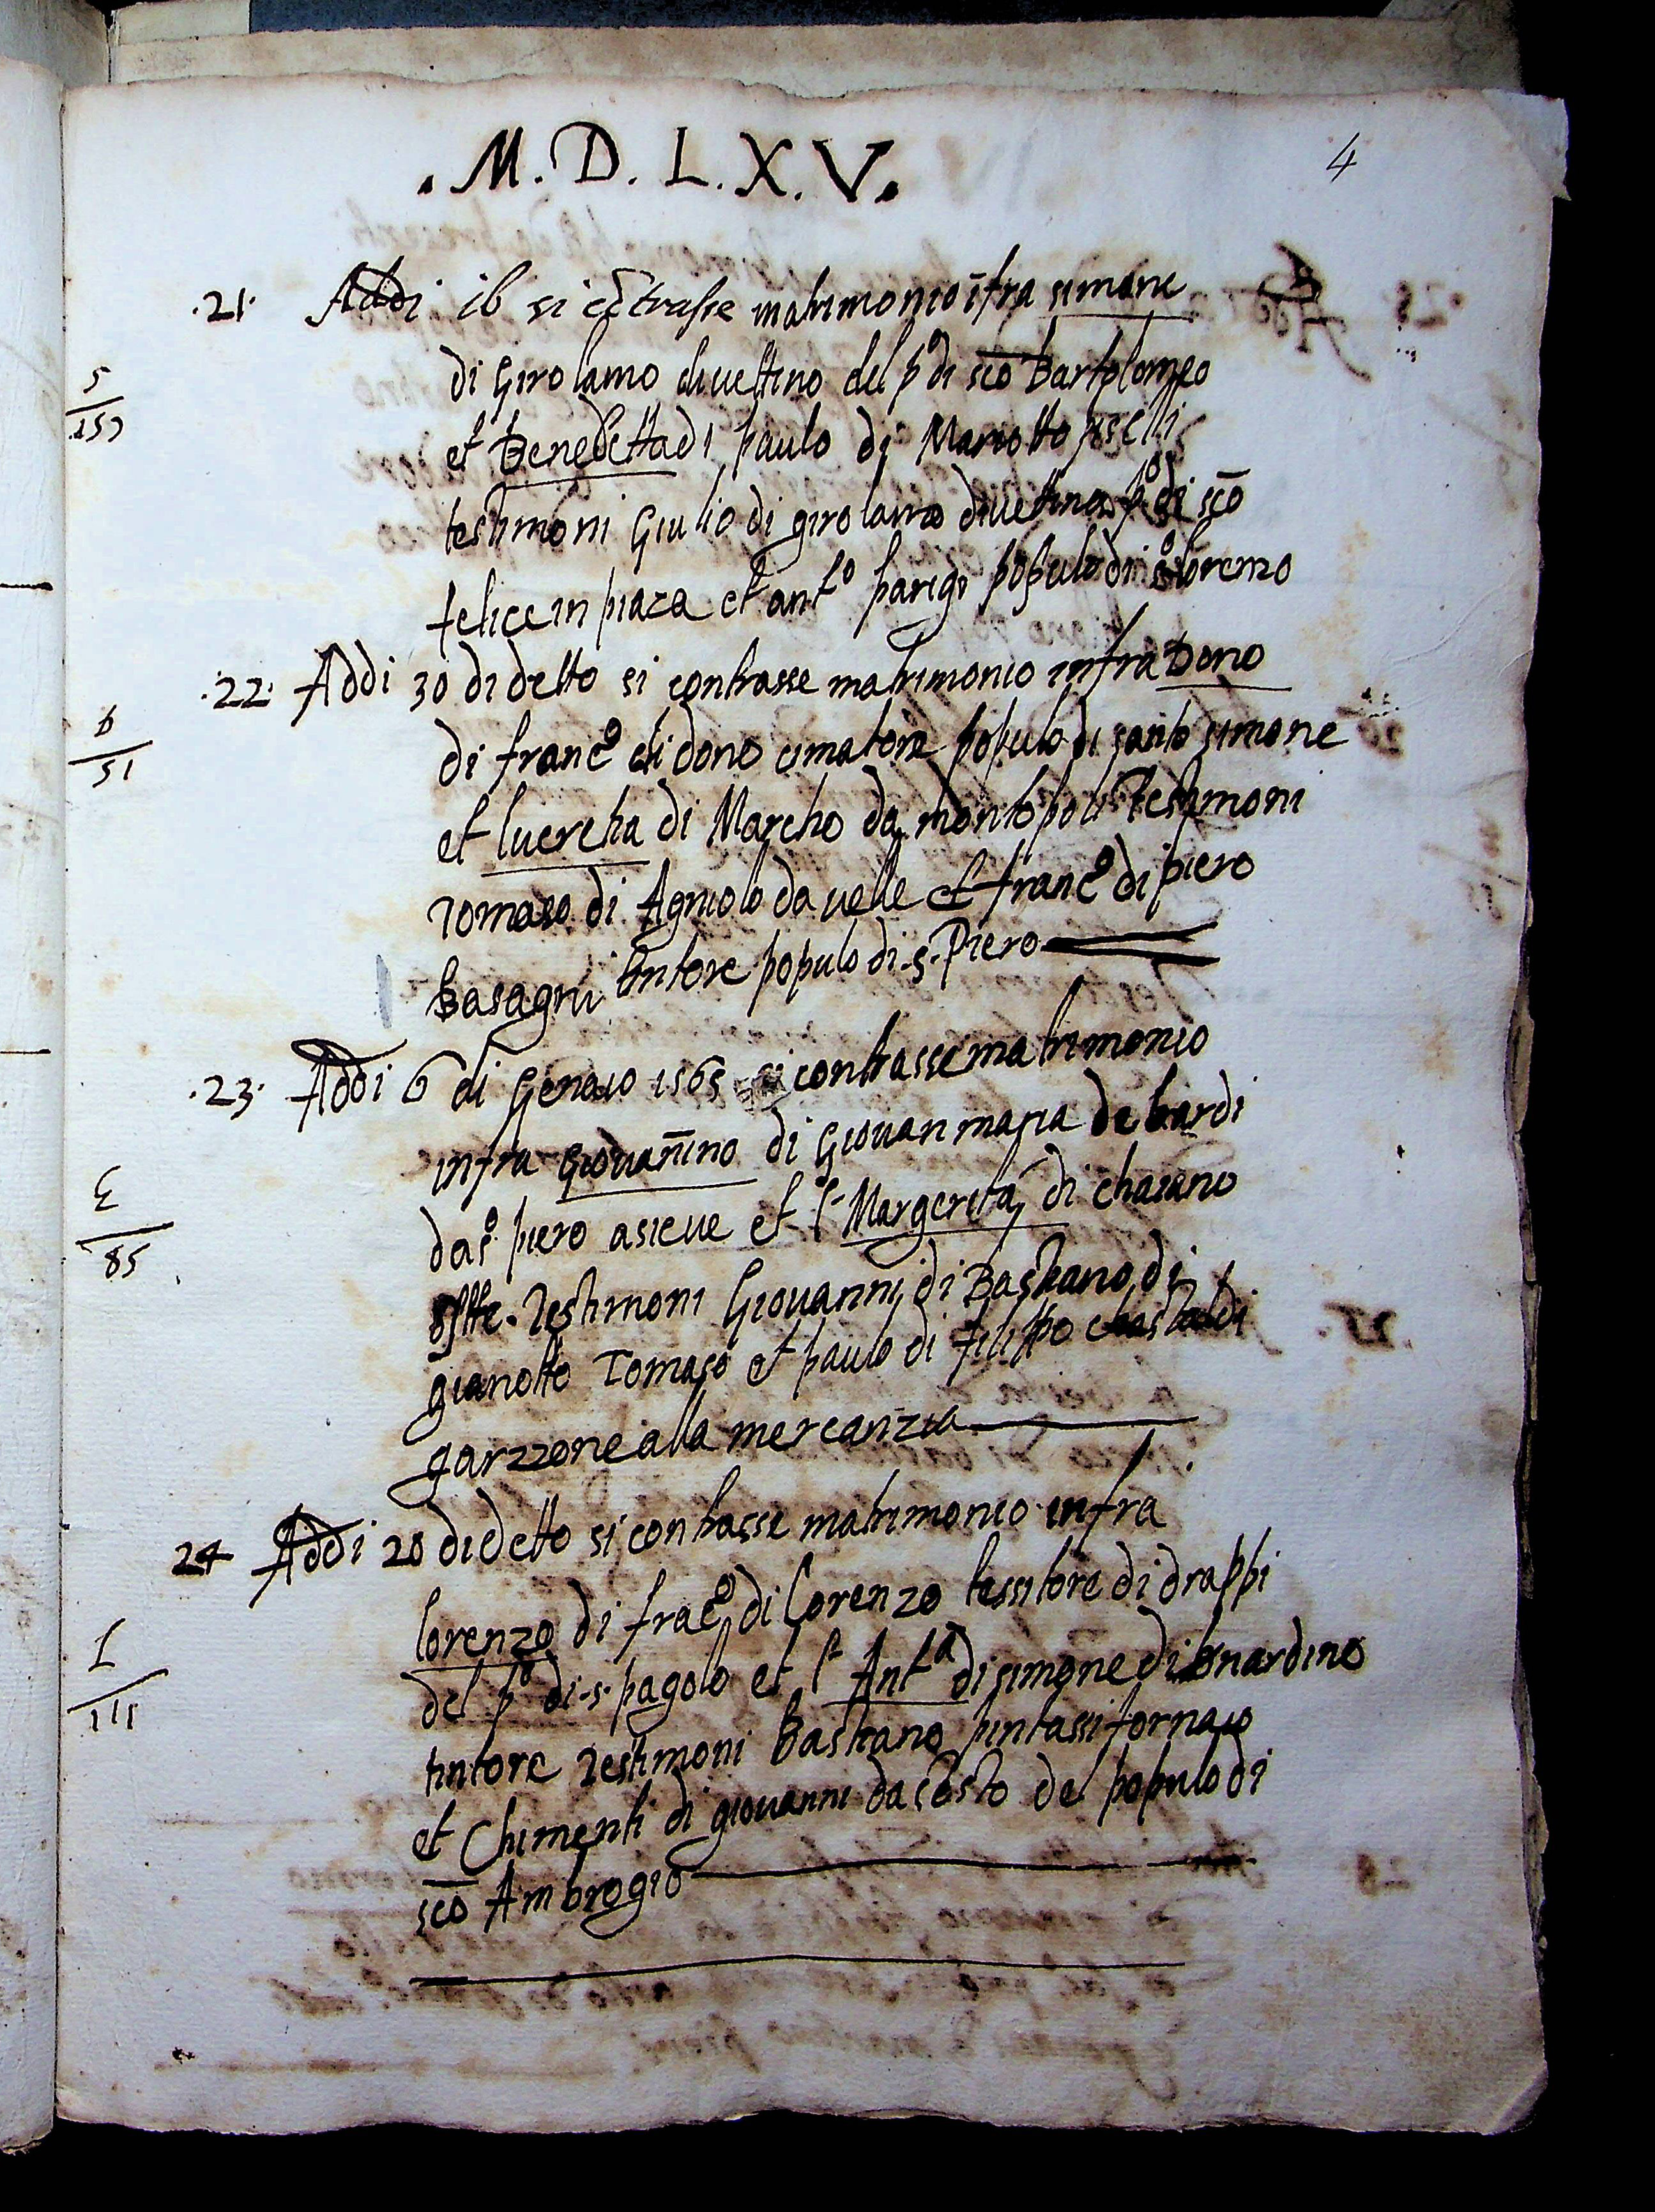 .M.D.L.X.V.
4
.21. Addi ib si cōtrasse matrimonio īfra simone
5
157
di Girolamo divettino del pº di scō Bartolomeo
et Benedetta di paulo di Mariotto
testimoni Giulio di girolamo divettino pº di scō
felice in piaza et antº parigi populo di sº lorenzo
.22. Addi 30 di detto si contrasse matrimonio infra Dono
D
51
di francº di dono cimatore populo di santo simone
et lucretia di Marcho da montopoli Testimoni
Tomaso di Agniolo da uelle et francº di piero
Basagni tintore populo di .s. Piero
.23. Addi 6 di Genaio 1565 si contrasse matrimonio
infra Giovañino di Giovanmaria de bardi
E
85
da sº piero asieve et lª Margerita di chaiano
Testimoni Giovanni di Bastiano di
gianotto Tomaso et paulo di filippo
garzzone alla mercanzia
24 Addi 28 di detto si contrasse matrimonio infra
lorenzo di fracº di lorenzo tessitore di drappi
I
111
del pº di .s. pagolo et lª Antª di simone di bnardino
tintore Testimoni Bastiano pintassi fornaio
et Chimenti di giovanni da sesto del populo di
scō Ambrogio